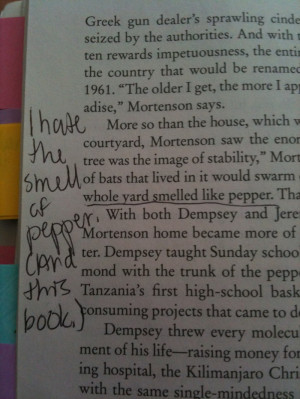 Greek gun dealer's sprawling cinde
seized by the authorities. And with
ten rewards impetuousness, the enti
the country that would be renamed
1961. "The older I get, the more I ap
adise," Mortenson says.
More so than the house, which w
courtyard, Mortenson saw the eno
tree was the image of stability," Mort
of bats that lived in it would swarm
whole yard smelled like pepper. Tha
With both Dempsey and Jere
Mortenson home became more of
ter. Dempsey taught Sunday schoo
mond with the trunk of the peppe
Tanzania's first high-school bask
consuming projects that came to d
Dempsey threw every molecu
ment of his life—raising money for
ing hospital, the Kilimanjaro Chri
with the same single-mindedness
I hate
the
smell
of
pepper.
(And
this
book.)